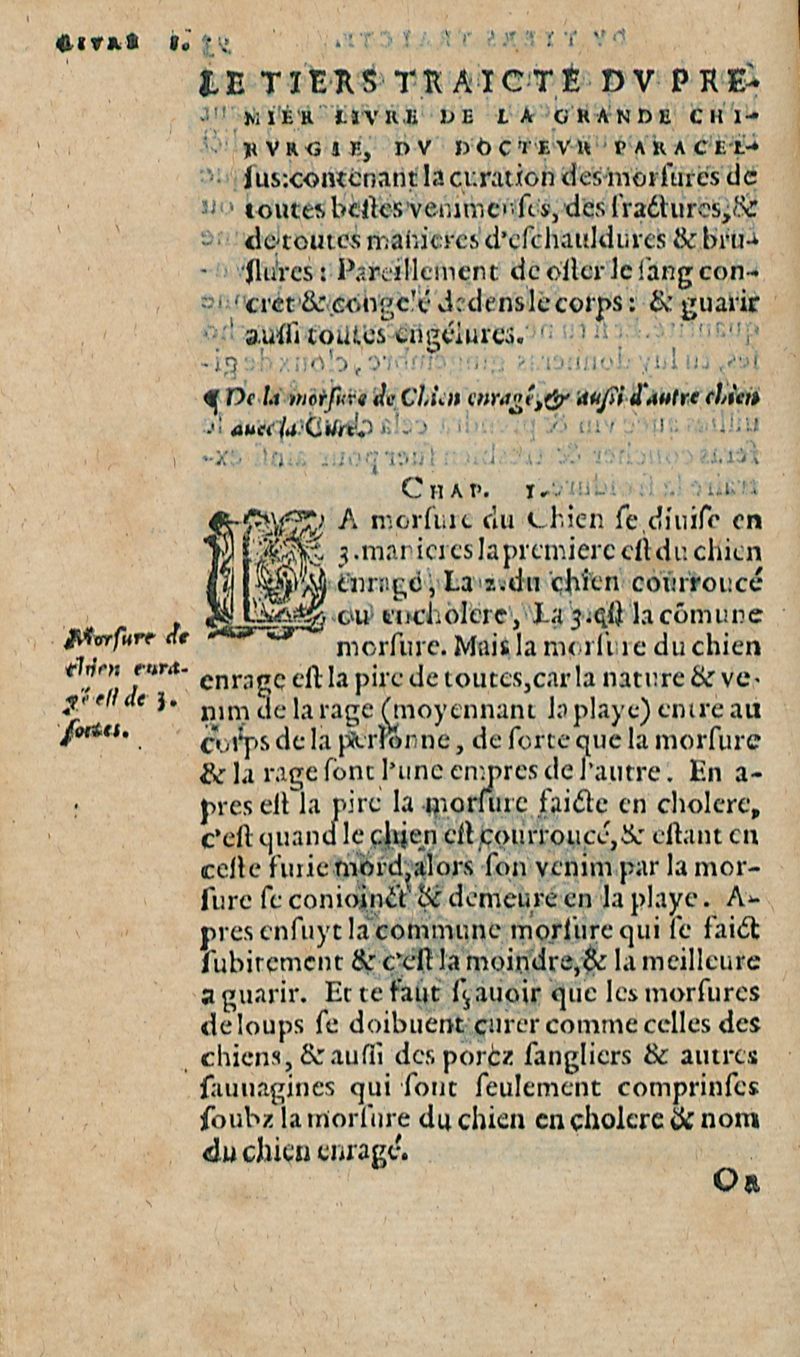 LE TIERS TRAICTE DV PRE-
MIER LIVRE DE LA GRANDE CHI-
RVRGIE, DV DOCTEVR PARACEL-
sus: contenant la curation des morsures de
toutes bestes venimeuses, des fractures, &
de toutes manieres d'eschauldures & bru-
slures: Pareillement de oster le sang con-
cret & congelé dedens le corps: & guarir
aussi toutes engelures.
¶ De la morsure de Chien enragé, & aussi d'autre chien
auec la Cure.
CHAP. 1.
LA morsure du Chien se diuise en
3. manieres la premiere est du chien
enragé, La 2. du chien courroucé
ou encholere, La 3. est la cõmune
morsure. Mais la morsure du chien
enrage est la pire de toutes, car la nature & ve-
nim de la rage (moyennant la playe) entre au
corps de la personne, de sorte que la morsure
& la rage sont l'une empres de l'autre. En a-
pres est la pire la morsure faicte en cholere,
c'est quand le chien est courroucé, & estant en
ceste furie mord, alors son venim par la mor-
sure se conioinct & demeure en la playe. A-
pres ensuyt la commune morsure qui se faict
subitement & c'est la moindre, & la meilleure
a guarir. Et te faut sçauoir que les morsures
de loups se doibuent curer comme celles des
chiens, & aussi des porcz sangliers & autres
sauuagines qui sont seulement comprinses
soubz la morsure du chien en cholere & nom
du chien enragé.
Or
Morsure de
chien enra-
gé est de 3.
sortes.